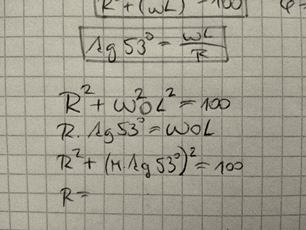 R² + (ωL)² = 100 φ=
Λg 53° = ωL/R
R² + ω²OL² = 100
R. Λg 53° = ωOL
R² + (R. Λg 53°)² = 100
R =